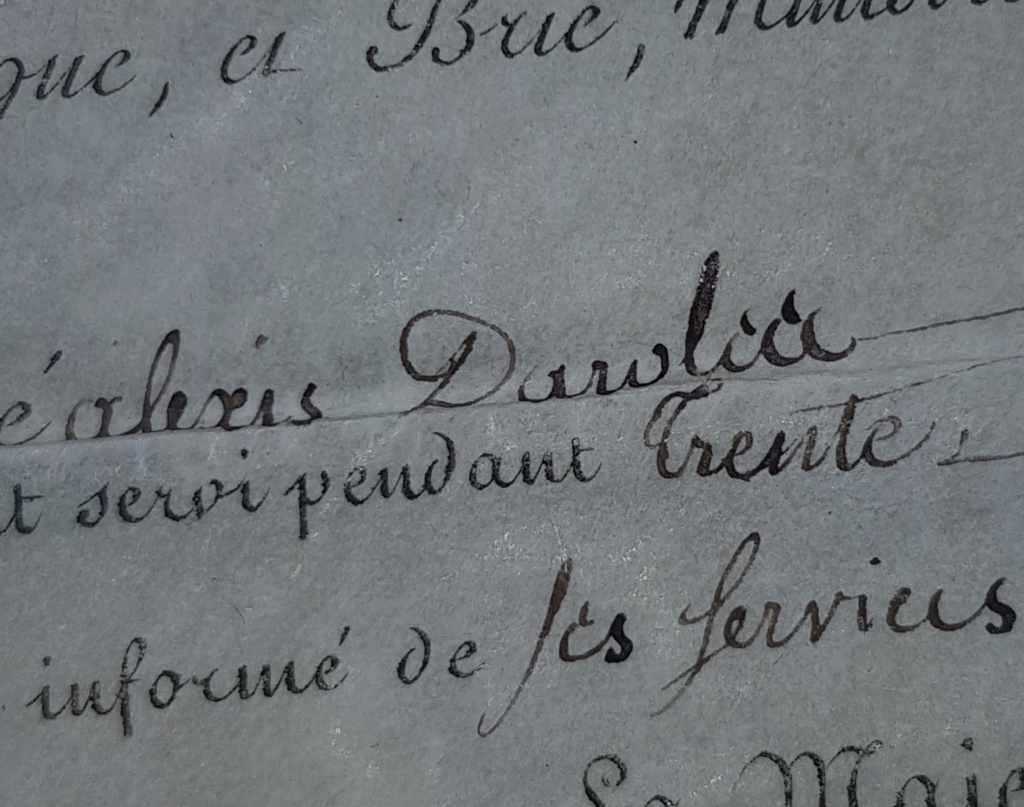 et Brie,
é alexis Darolai
servi pendant Trente,
informé de ses services
Sa Maje